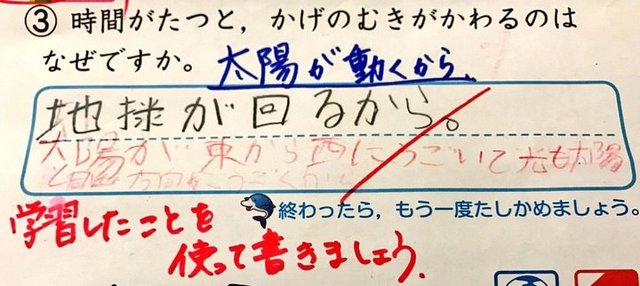 ③ 時間がたつと，かげのむきがかわるのは
なぜですか。太陽が動くから.
地球が回るから。
太陽が東から西にうごいて光も太陽
と
終わったら，もう一度たしかめましょう。
学習したことを
使って書きましょう.